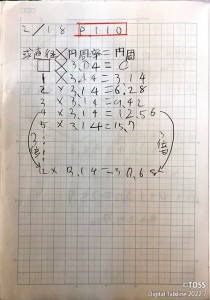 2/18 P110
直径×円周率=円周
□×3.14=○
1×3.14=3.14
2×3.14=6.28
3×3.14=9.42
4×3.14=12.56
5×3.14=15.7
3倍 3倍
12×3.14=37.68
©TOSS
Digital Talkline 2022.7